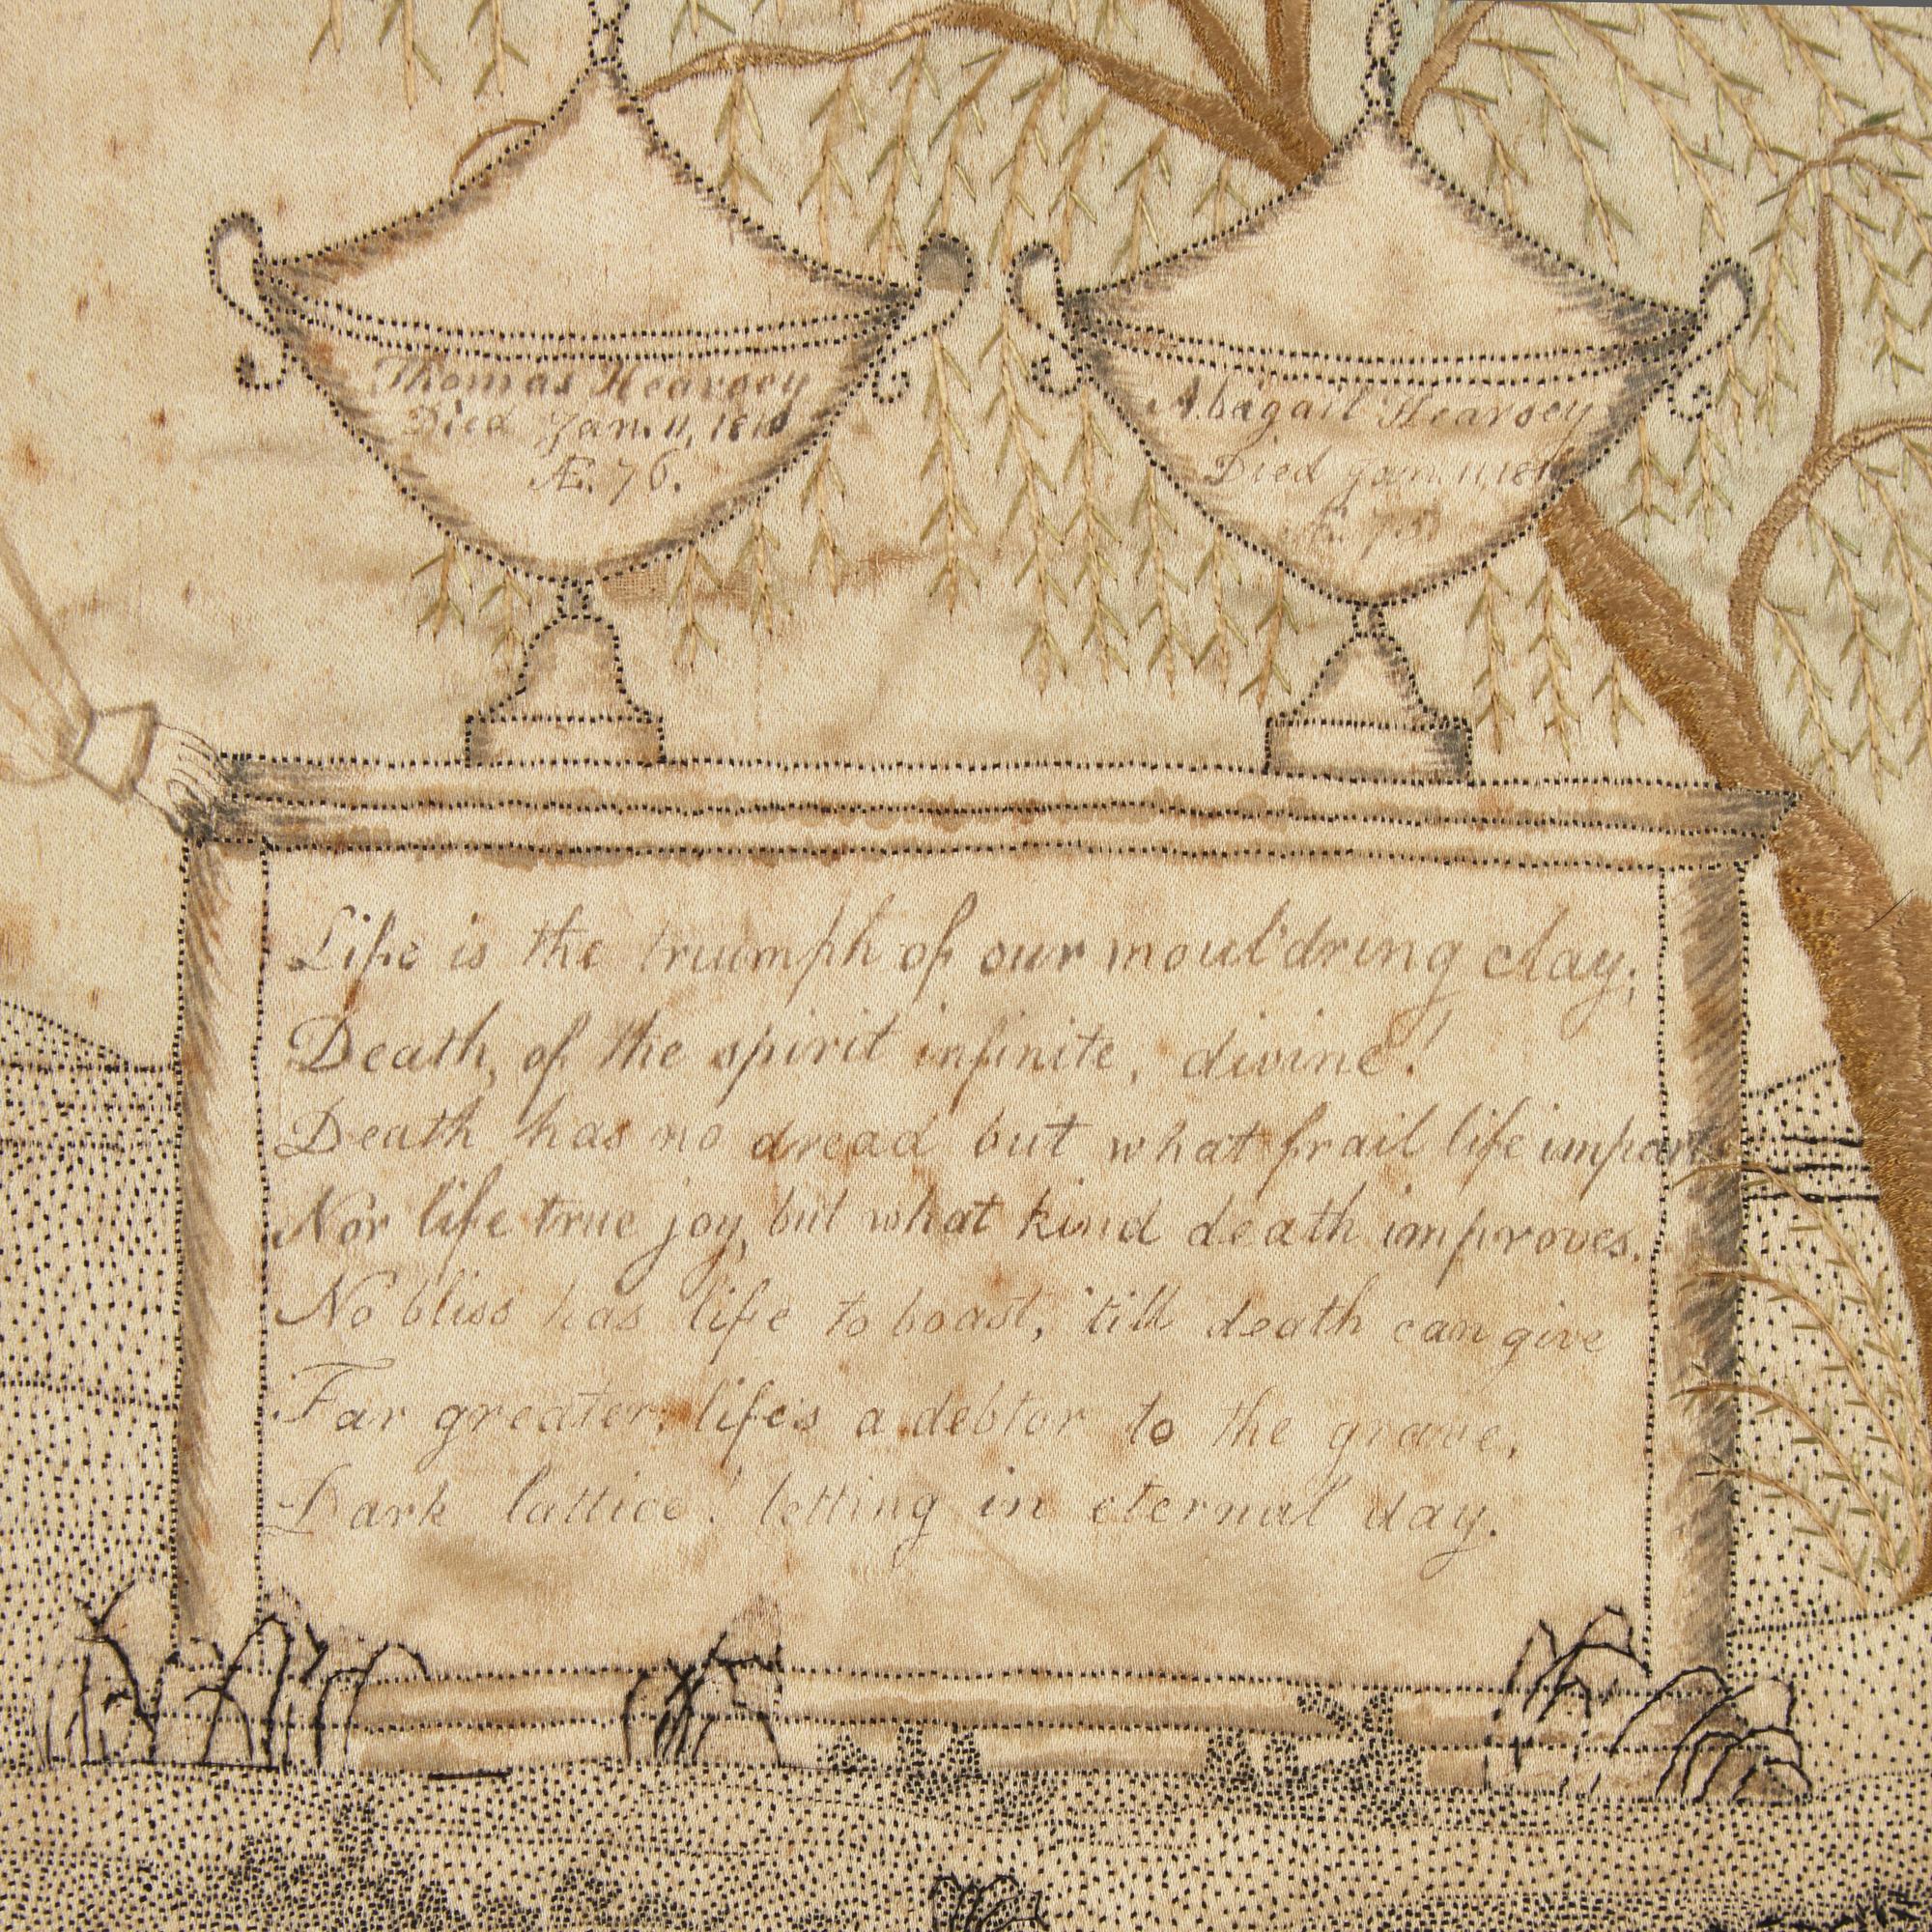 Thomas Hearsey
Died Jan. 11, 
Æ. 76.
Abagail Hearsey
Died Jan. 11,
Life is the triumph of our mould'ring clay;
Death, of the spirit infinite, divine!
Death has no dread but what frail life imparts
Nor life true joy, but what kind death improves.
No bliss has life to boast, 'till death can give
Far greater; life's a debtor to the grave,
Dark lattice! letting in eternal day.